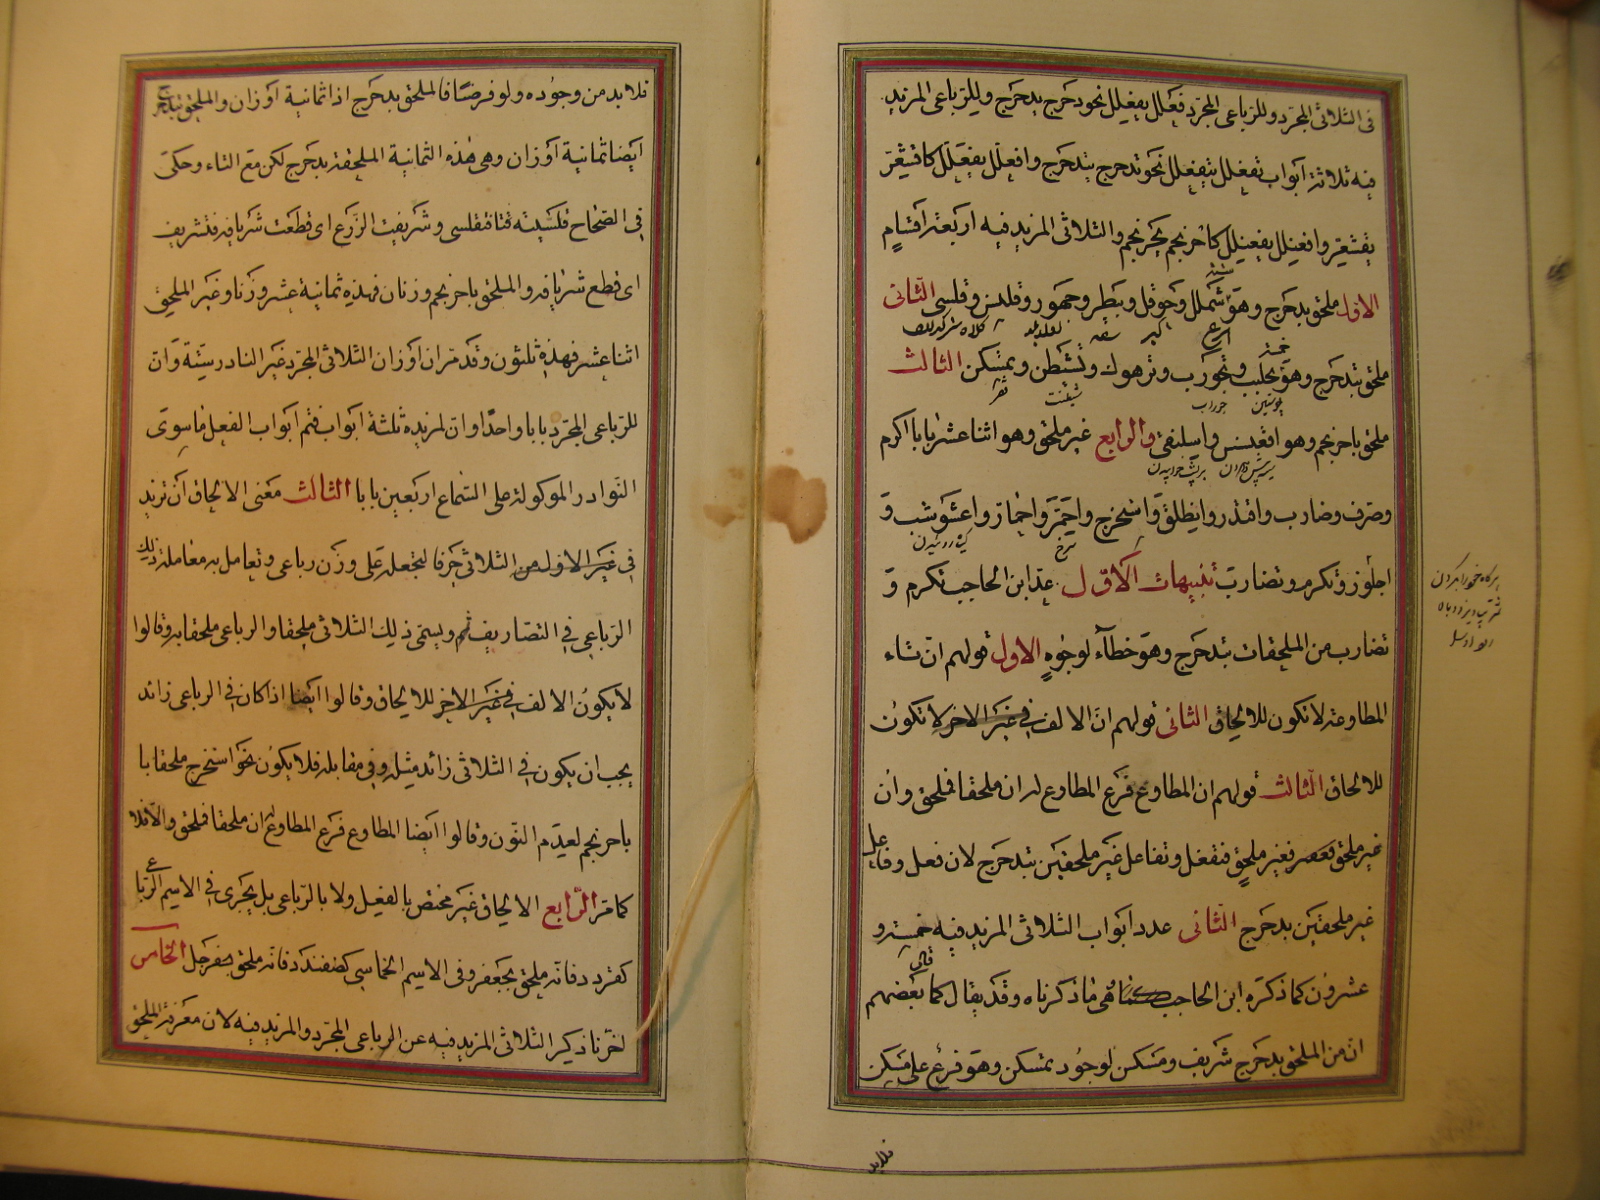 فى الثلاثى المجرّد وللرباعى المجرّد فعلل يفعلل نحو دحرج يدحرج وللرباعى المزيد
فيه ثلاثة ابواب تفعلل يتفعلل نحو تدحرج يتدحرج وافعلّل يفعلّل كاقشعرّ
يقشعرّ وافعنلل يفعنلل كاحرنجم يحرنجم والثلاثى المزيد فيه اربعة اقسام
ستة
الاول ملحق بدحرج وهو شملل وحوقل وبيطر وجهور وقلنس وقلسى الثانى
خمسة
ملحق بتدحرج وهو تجلبب وتجورب وترهوك وتشيطن وتمسكن الثالث
پوستين جوراب
ملحق باحرنجم وهو اقعنسس واسلنقى والرابع غير ملحق وهو اثنا عشر بابا اكرم
وصرف وضارب واقتدر وانطلق واستخرج واحمرّ واحمارّ واعشوشب و
سرخ
اجلوّز وتكرم وتضارب تنبيهات الاول عدّ ابن الحاجب تكرم و
تضارب من الملحقات بتدحرج وهو خطآء لوجوه الاول قولهم ان تاء
المطاوعة لا تكون للالحاق الثانى قولهم ان الالف فى غير الاخر لا تكون
للالحاق الثالث قولهم ان المطاوع فرع المطاوع له ان ملحقا فملحق وان
غير ملحق فغير ملحق فتفعل وتفاعل غير ملحقين بتدحرج لان فعل وفاعل
غير ملحقين بدحرج الثانى عدد ابواب الثلاثى المزيد فيه خمسة و
عشرون كما ذكره ابن الحاجب هى ما ذكرناه وقد يقال كما بعضهم
قال
ان من الملحق بدحرج شريف ومسكن لوجود تمسكن وهو فرع على مسكن
فلابد
فلا بد من وجوده ولو فرضا فالملحق بدحرج اذا ثمانية اوزان والملحق بتدحرج
ايضا ثمانية اوزان وهى هذه الثمانية الملحقة بدحرج لكن مع التاء وحكى
فى الصحاح قلسيته فتقلسى وشريفت الزرع اى قطعت شريافه فتشريف
اى قطع شريافه والملحق باحرنجم وزنان فهذه ثمانية عشر وزنا وغير الملحق
اثنا عشر فهذه ثلثون وقد مر ان اوزان الثلاثى المجرد غير النادر ستة وان
للرباعى المجرد بابا واحدا وان لمزيده ثلثة ابواب فتم ابواب الفعل ما سوى
النوادر الموكولة على السماع اربعين بابا الثالث معنى الالحاق ان تزيد
فى غير الاول من الثلاثى حرفا لتجعله على وزن رباعى وتعامل به معاملة ذلك
الرباعى فى التصاريف ويسمى ذلك الثلاثى ملحقا والرباعى ملحقا به وقالوا
لا يكون الالف فى غير الاخر للالحاق وقالوا ايضا اذا كان فى الرباعى زائد
يجب ان يكون فى الثلاثى زائد مثله وفى مقابله فلا يكون نحو استخرج ملحقا با
باحرنجم لعدم النون وقالوا ايضا المطاوع فرع المطاوع له ان ملحقا فملحق والا فلا
كما مر الرابع الالحاق غير مختص بالفعل ولا بالرباعى بل يجرى فى الاسم الرباعى
كقردد فانه ملحق بجعفر وفى الاسم الخماسى كضفندد فانه ملحق بسفرجل الخامس
اخرنا ذكر الثلاثى المزيد فيه عن الرباعى المجرد والمزيد فيه لان معرفة الملحق